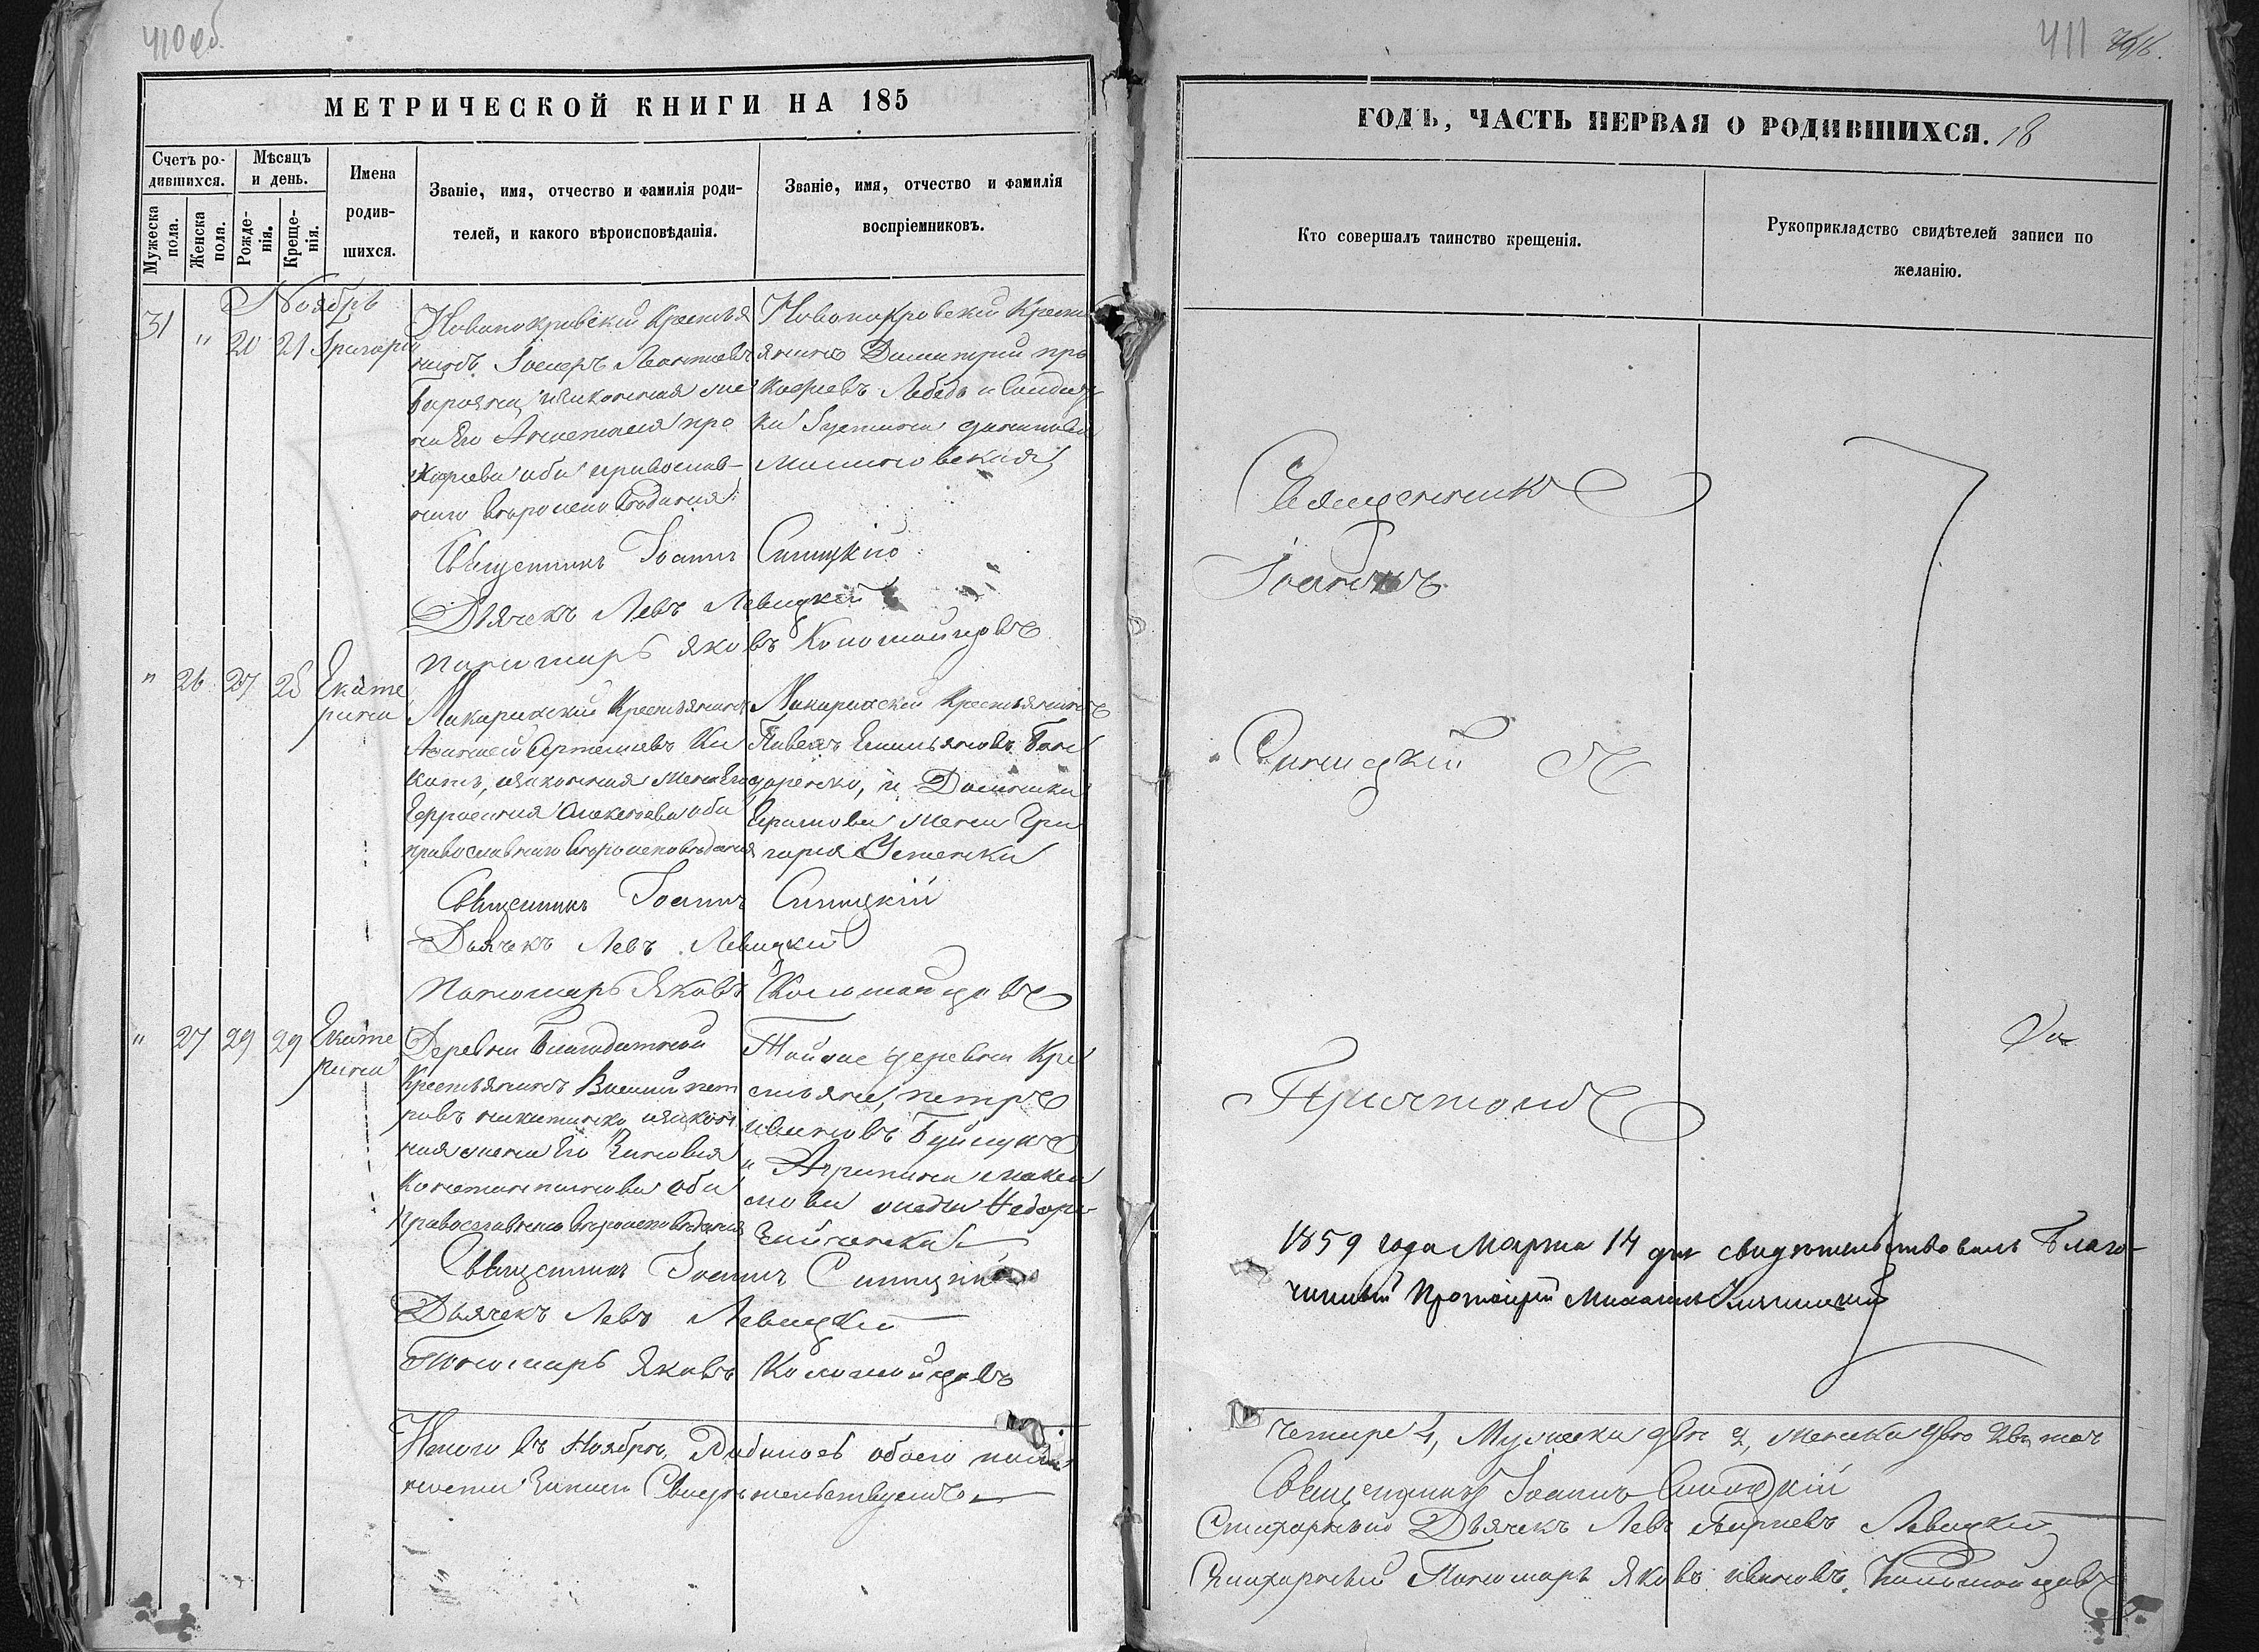 410 об.
МЕТРИЧЕСКОЙ КНИГИ НА 185
Счетъ ро-
дившихся.
Мужеска
пола.
Женска
пола.
Мѣсяцъ
и день.
Рожде-
нія.
Креще-
нія.
Имена
родив-
шихся.
Званіе, имя, отчество и фамилія роди-
телей, и какого вѣроисповѣданія.
Званіе, имя, отчество и фамилія
воспріемниковъ.
Ноябрь
31 " 20 21 Григорій
Новопокровскій Крестья
нинъ Леонтіевъ
законная же
на Его Анастасія Про
кофіева оба православ-
наго вѣроисповѣданія
Новопокровскій Крест
янинъ Димитрій Про
кофіевъ Лебедь и
Священникъ Іоаннъ Синицкій
Дьячекъ Левъ Левицкій
Пономарь Яковъ Коломойцовъ
" 26 27 28 Екате
рина
Макарихскій Крестьянинъ
Артемиевъ
законная жена Его
Евфросинія Алексѣева оба
православнаго вѣроисповѣданія
Макарихскій Крестьянинъ
Павелъ Емельяновъ Бон
даренко, и Домникія
Ефимова жена Гри
горія Усенка
Священникъ Іоаннъ Синицкій
Дьячекъ Левъ Левицкій
Пономарь Яковъ Коломойцовъ
" 27 29 29 Екате
рина
Деревни Благодатной
Крестьянинъ Василій Пет
ровъ Никитенко, закон
ная жена Его Зиновія
Константинова оба
Православнаго вѣроисповѣданія
Тойже деревни Кре
стьяне, Петръ
Ивановъ
и Агрипина Макси
мова Федора
Зайченка
Священникъ Іоаннъ Синицкій
Дьячекъ Левъ Левицкій
Пономарь Яковъ Коломойцовъ
Итого въ Ноябрѣ, Родилось обоего пола
Свидѣтельствуемъ
411
ГОДЪ, ЧАСТЬ ПЕРВАЯ О РОДИВШИХСЯ. 18
Кто совершалъ таинство крещенія.
Рукоприкладство свидѣтелей записи по
желанію.
Священникъ
Іоаннъ
Синицкій
Съ
Причтомъ
1859 года Марта 14 дня свидѣтельствовалъ Благо-
чинный Протоіерей Михаилъ
Четыре 4, Мужеска двѣ 2, женска двѣ 2
Священникъ Іоаннъ Синицкій
Стихарный Дьячекъ Левъ Левицкій
Стихарный Пономарь Яковъ Ивановъ Коломойцовъ